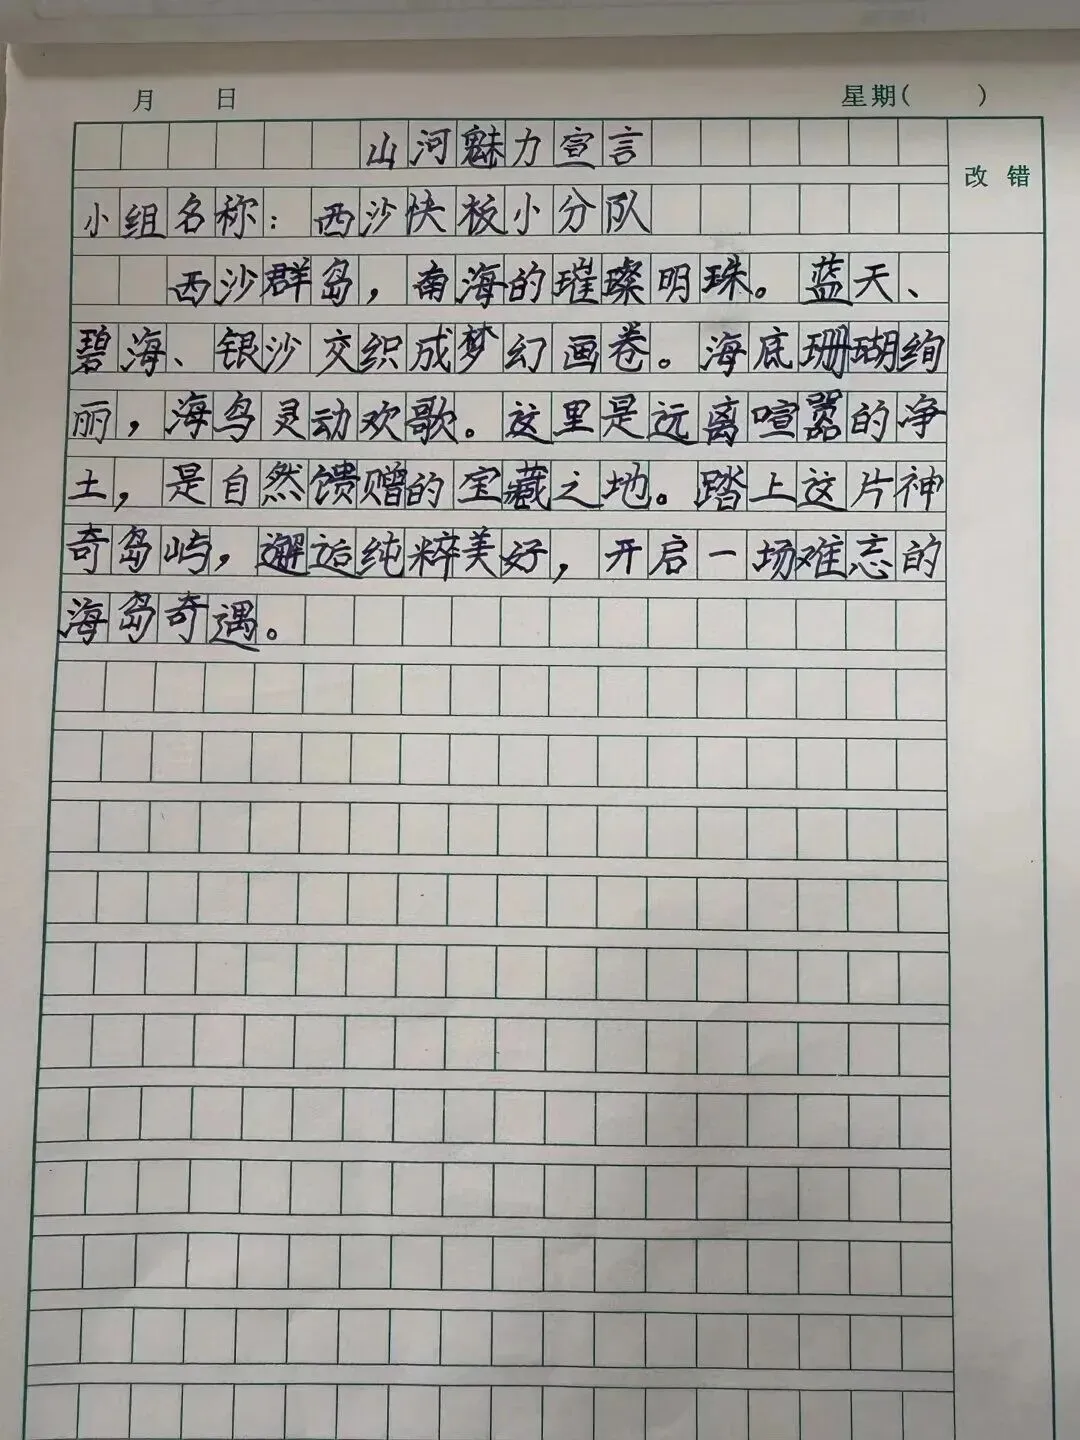 月 日 星期( )
山河魅力宣言
改错
小组名称：西沙快板小分队
西沙群岛，南海的璀璨明珠。蓝天、
碧海、银沙交织成梦幻画卷。海底珊瑚绚
丽，海鸟灵动欢歌。这里是远离喧嚣的净
土，是自然馈赠的宝藏之地。踏上这片神
奇岛屿，邂逅纯粹美好，开启一场难忘的
海岛奇遇。